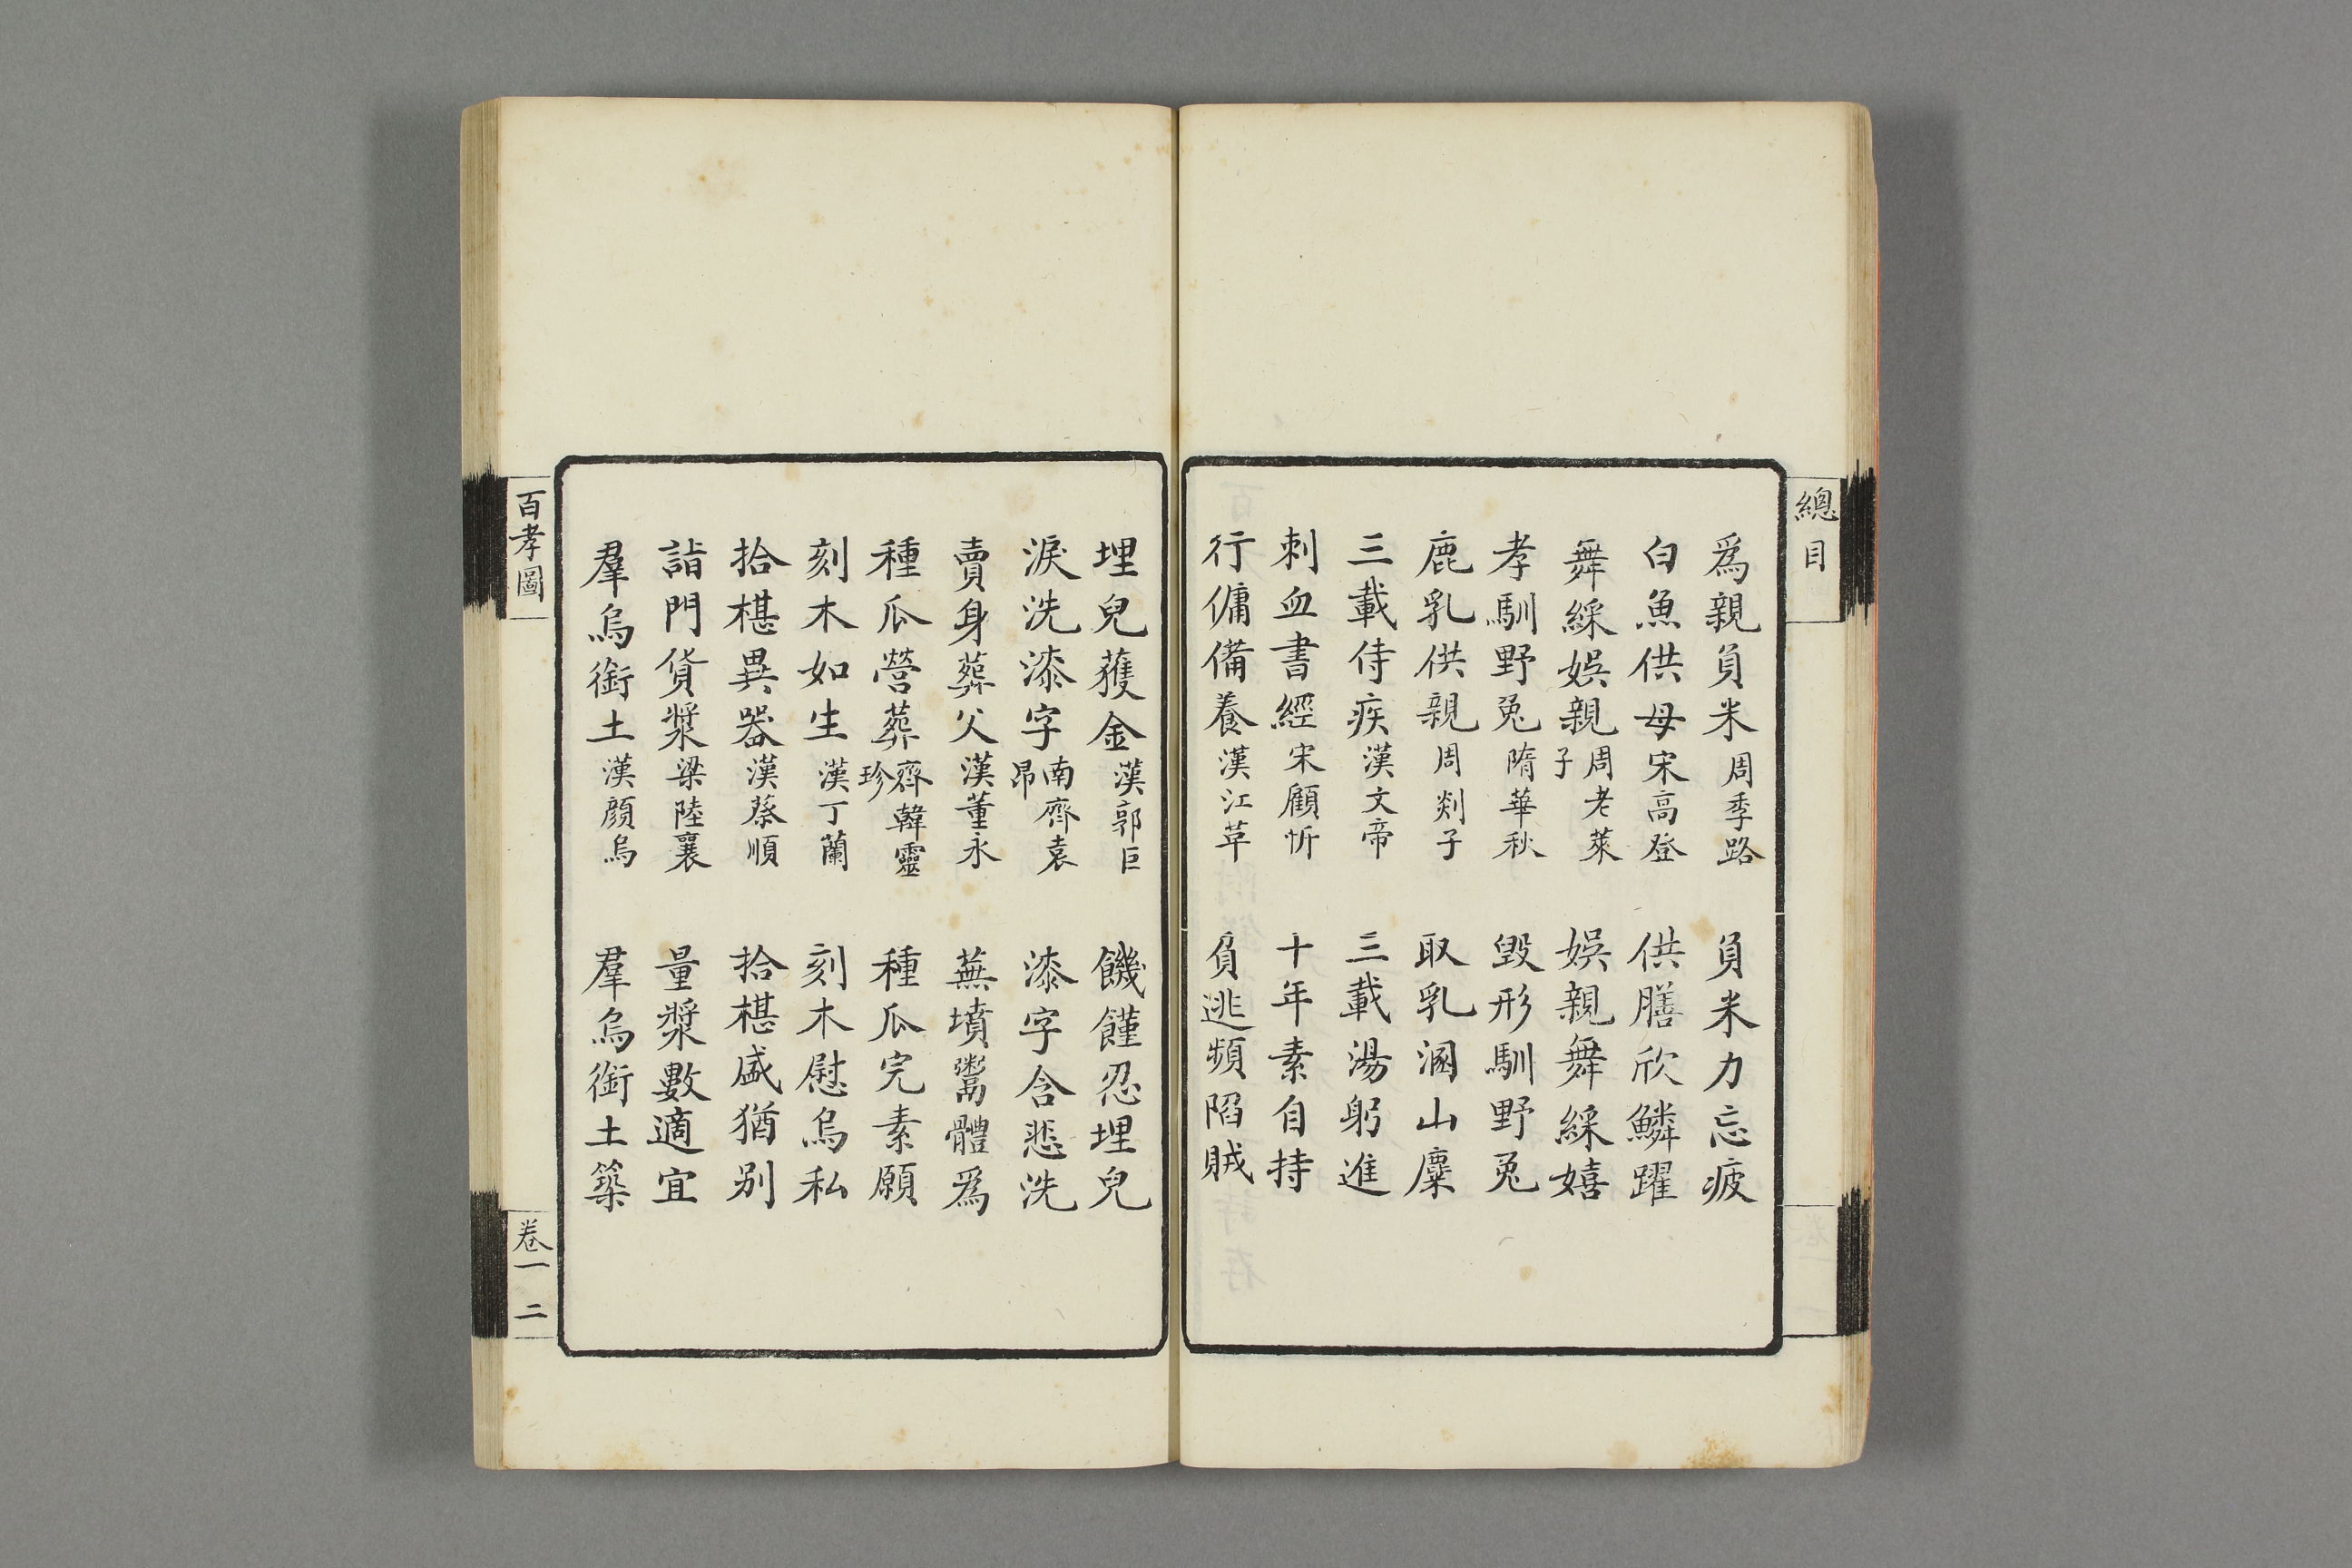 總目
為親負米 周季路 負米力忘疲
白魚供母 宋高登 供膳欣鱗躍
舞綵娛親 周老萊子 娛親舞綵嬉
孝馴野兔 隋華秋 毀形馴野兔
鹿乳供親 周剡子 取乳溷山麋
三載侍疾 漢文帝 三載湯躬進
刺血書經 宋顧忻 十年素自持
行傭備養 漢江革 負逃頻陷賊
埋兒獲金 漢郭巨 饑饉忍埋兒
淚洗漆字 南齊袁昂 漆字含悲洗
賣身葬父 漢董永 蕪墳鬻體為
種瓜營葬 齊韓靈珍 種瓜完素願
刻木如生 漢丁蘭 刻木慰烏私
拾椹異器 漢蔡順 拾椹盛猶别
詣門貸漿 梁陸襄 量漿數適宜
羣烏銜土 漢顔烏 羣烏銜土築
百孝圖
卷一 二